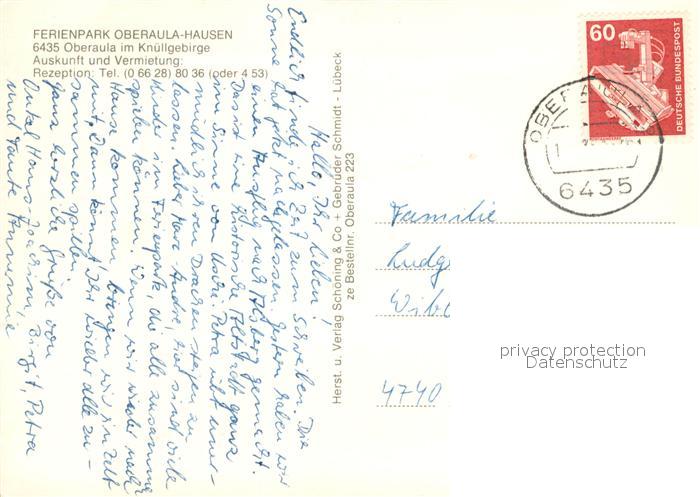 FERIENPARK OBERAULA-HAUSEN
6435 Oberaula im Knüllgebirge
Auskunft und Vermietung:
Rezeption: Tel. (0 66 28) 80 36 (oder 4 53)
Hallo, Ihr Lieben!
Endlich finde ich Zeit zum Schreiben. Die
Sonne hat jetzt nachgelassen. Gestern haben wir
einen Ausflug nach Alsberg gemacht.
Das ist eine historische Altstadt ganz
im Sinne von Uschi. Petra übt uner-
müdlich ihren Drachen steigen zu
lassen. Lieber André, hier sind viele
Kinder im Ferienpark, die alle zusammen
spielen können. Wenn wir wieder nach
Hause kommen, bringen wir ein Zelt
mit. Dann könnt Ihr wieder alle zu-
sammen spielen.
Ganz herzliche Grüße von
Onkel Hans-Joachim, Birgit, Petra
und Tante Annemie
Herst. u. Verlag Schöning & Co + Gebrüder Schmidt - Lübeck
ze Bestellnr. Oberaula 223
60
DEUTSCHE BUNDESPOST
OBERAULA
6435
Familie
Ludg
Wib
4740
privacy protection
Datenschutz